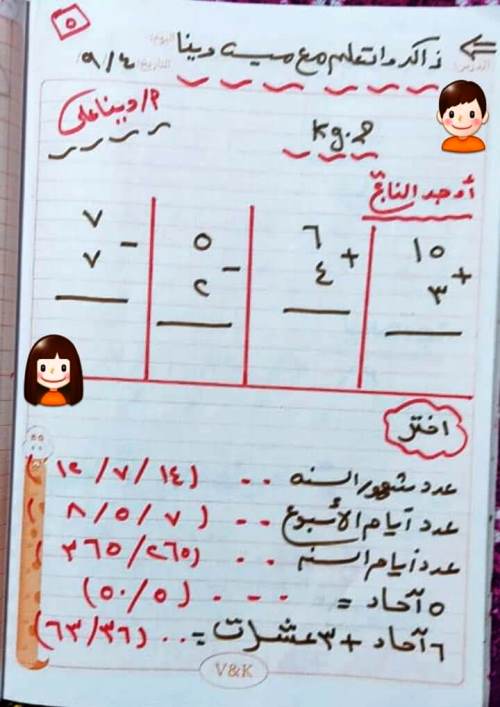 ٥
ذاكر واتعلم مع ميس دينا
٩/٤
م/دينا على
Kg.2
أوجد الناتج
١٥ + ٣
٦ + ٤
٥ - ٢
٧ - ٧
اختر
عدد شهور السنه .. (١٤/٧/١٢)
عدد أيام الأسبوع .. (٧/٥/٨)
عدد أيام السنه .. (٢٦٥/٣٦٥)
٥ آحاد = --- (٥/٥٠)
٦ آحاد + ٣ عشرات = .. (٣٦/٦٣)
V&K